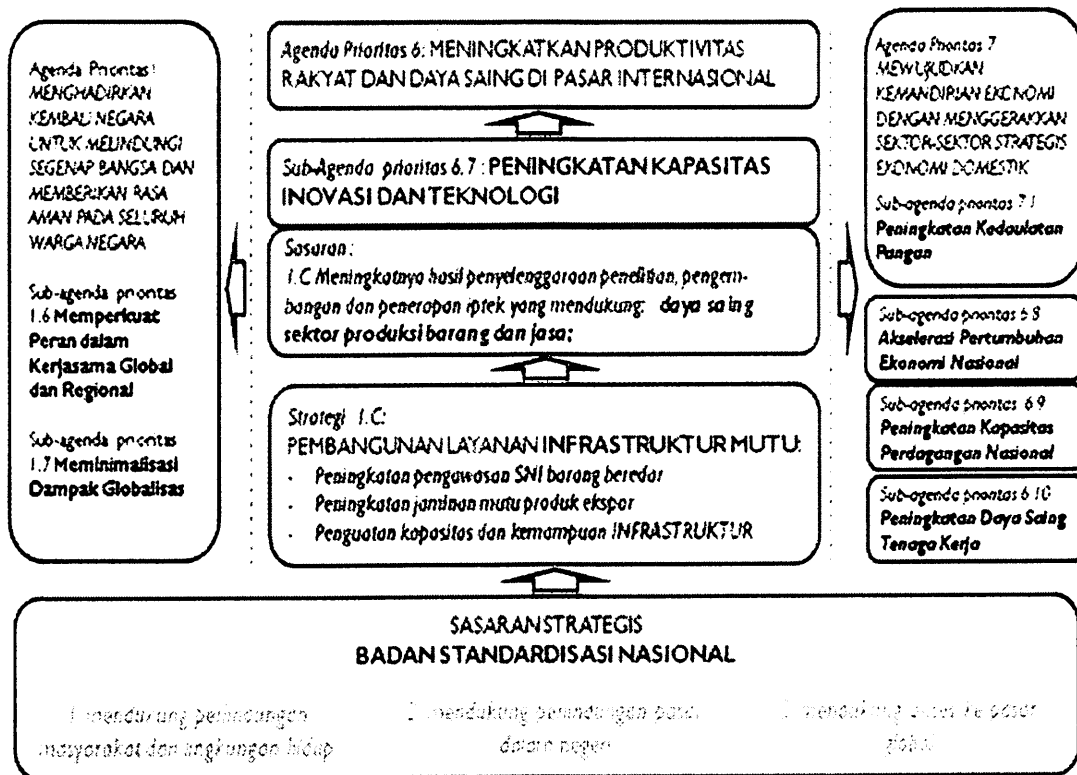 Agenda Prioritas 1
MENGHADIRKAN
KEMBALI NEGARA
UNTUK MELINDUNGI
SEGENAP BANGSA DAN
MEMBERIKAN RASA
AMAN PADA SELURUH
WARGA NEGARA
Sub-agenda prioritas
1.6 Memperkuat
Peran dalam
Kerjasama Global
dan Regional
Sub-agenda prioritas
1.7 Meminimalisasi
Dampak Globalisas
Agenda Prioritas 6: MENINGKATKAN PRODUKTIVITAS
RAKYAT DAN DAYA SAING DI PASAR INTERNASIONAL
Sub-Agenda prioritas 6.7 : PENINGKATAN KAPASITAS
INOVASI DAN TEKNOLOGI
Sasaran :
1.C Meningkatnya hasil penyelenggaraan penelitian, pengem-
bangan dan penerapan iptek yang mendukung: daya saing
sektor produksi barang dan jasa;
Strategi 1.C:
PEMBANGUNAN LAYANAN INFRASTRUKTUR MUTU:
- Peningkatan pengawasan SNI barang beredar
- Peningkatan jaminan mutu produk ekspor
- Penguatan kapasitas dan kemampuan INFRASTRUKTUR
Agenda Prioritas 7
MEWUJUDKAN
KEMANDIRIAN EKONOMI
DENGAN MENGGERAKKAN
SEKTOR-SEKTOR STRATEGIS
EKONOMI DOMESTIK
Sub-agenda prioritas 7.1
Peningkatan Kedaulatan
Pangan
Sub-agenda prioritas 6.8
Akselerasi Pertumbuhan
Ekonomi Nasional
Sub-agenda prioritas 6.9
Peningkatan Kapasitas
Perdagangan Nasional
Sub-agenda prioritas 6.10
Peningkatan Daya Saing
Tenaga Kerja
SASARAN STRATEGIS
BADAN STANDARDISASI NASIONAL
1. mendukung perlindungan
masyarakat dan lingkungan hidup
2. mendukung perlindungan pasar
dalam negeri
3. mendukung akses ke pasar
global